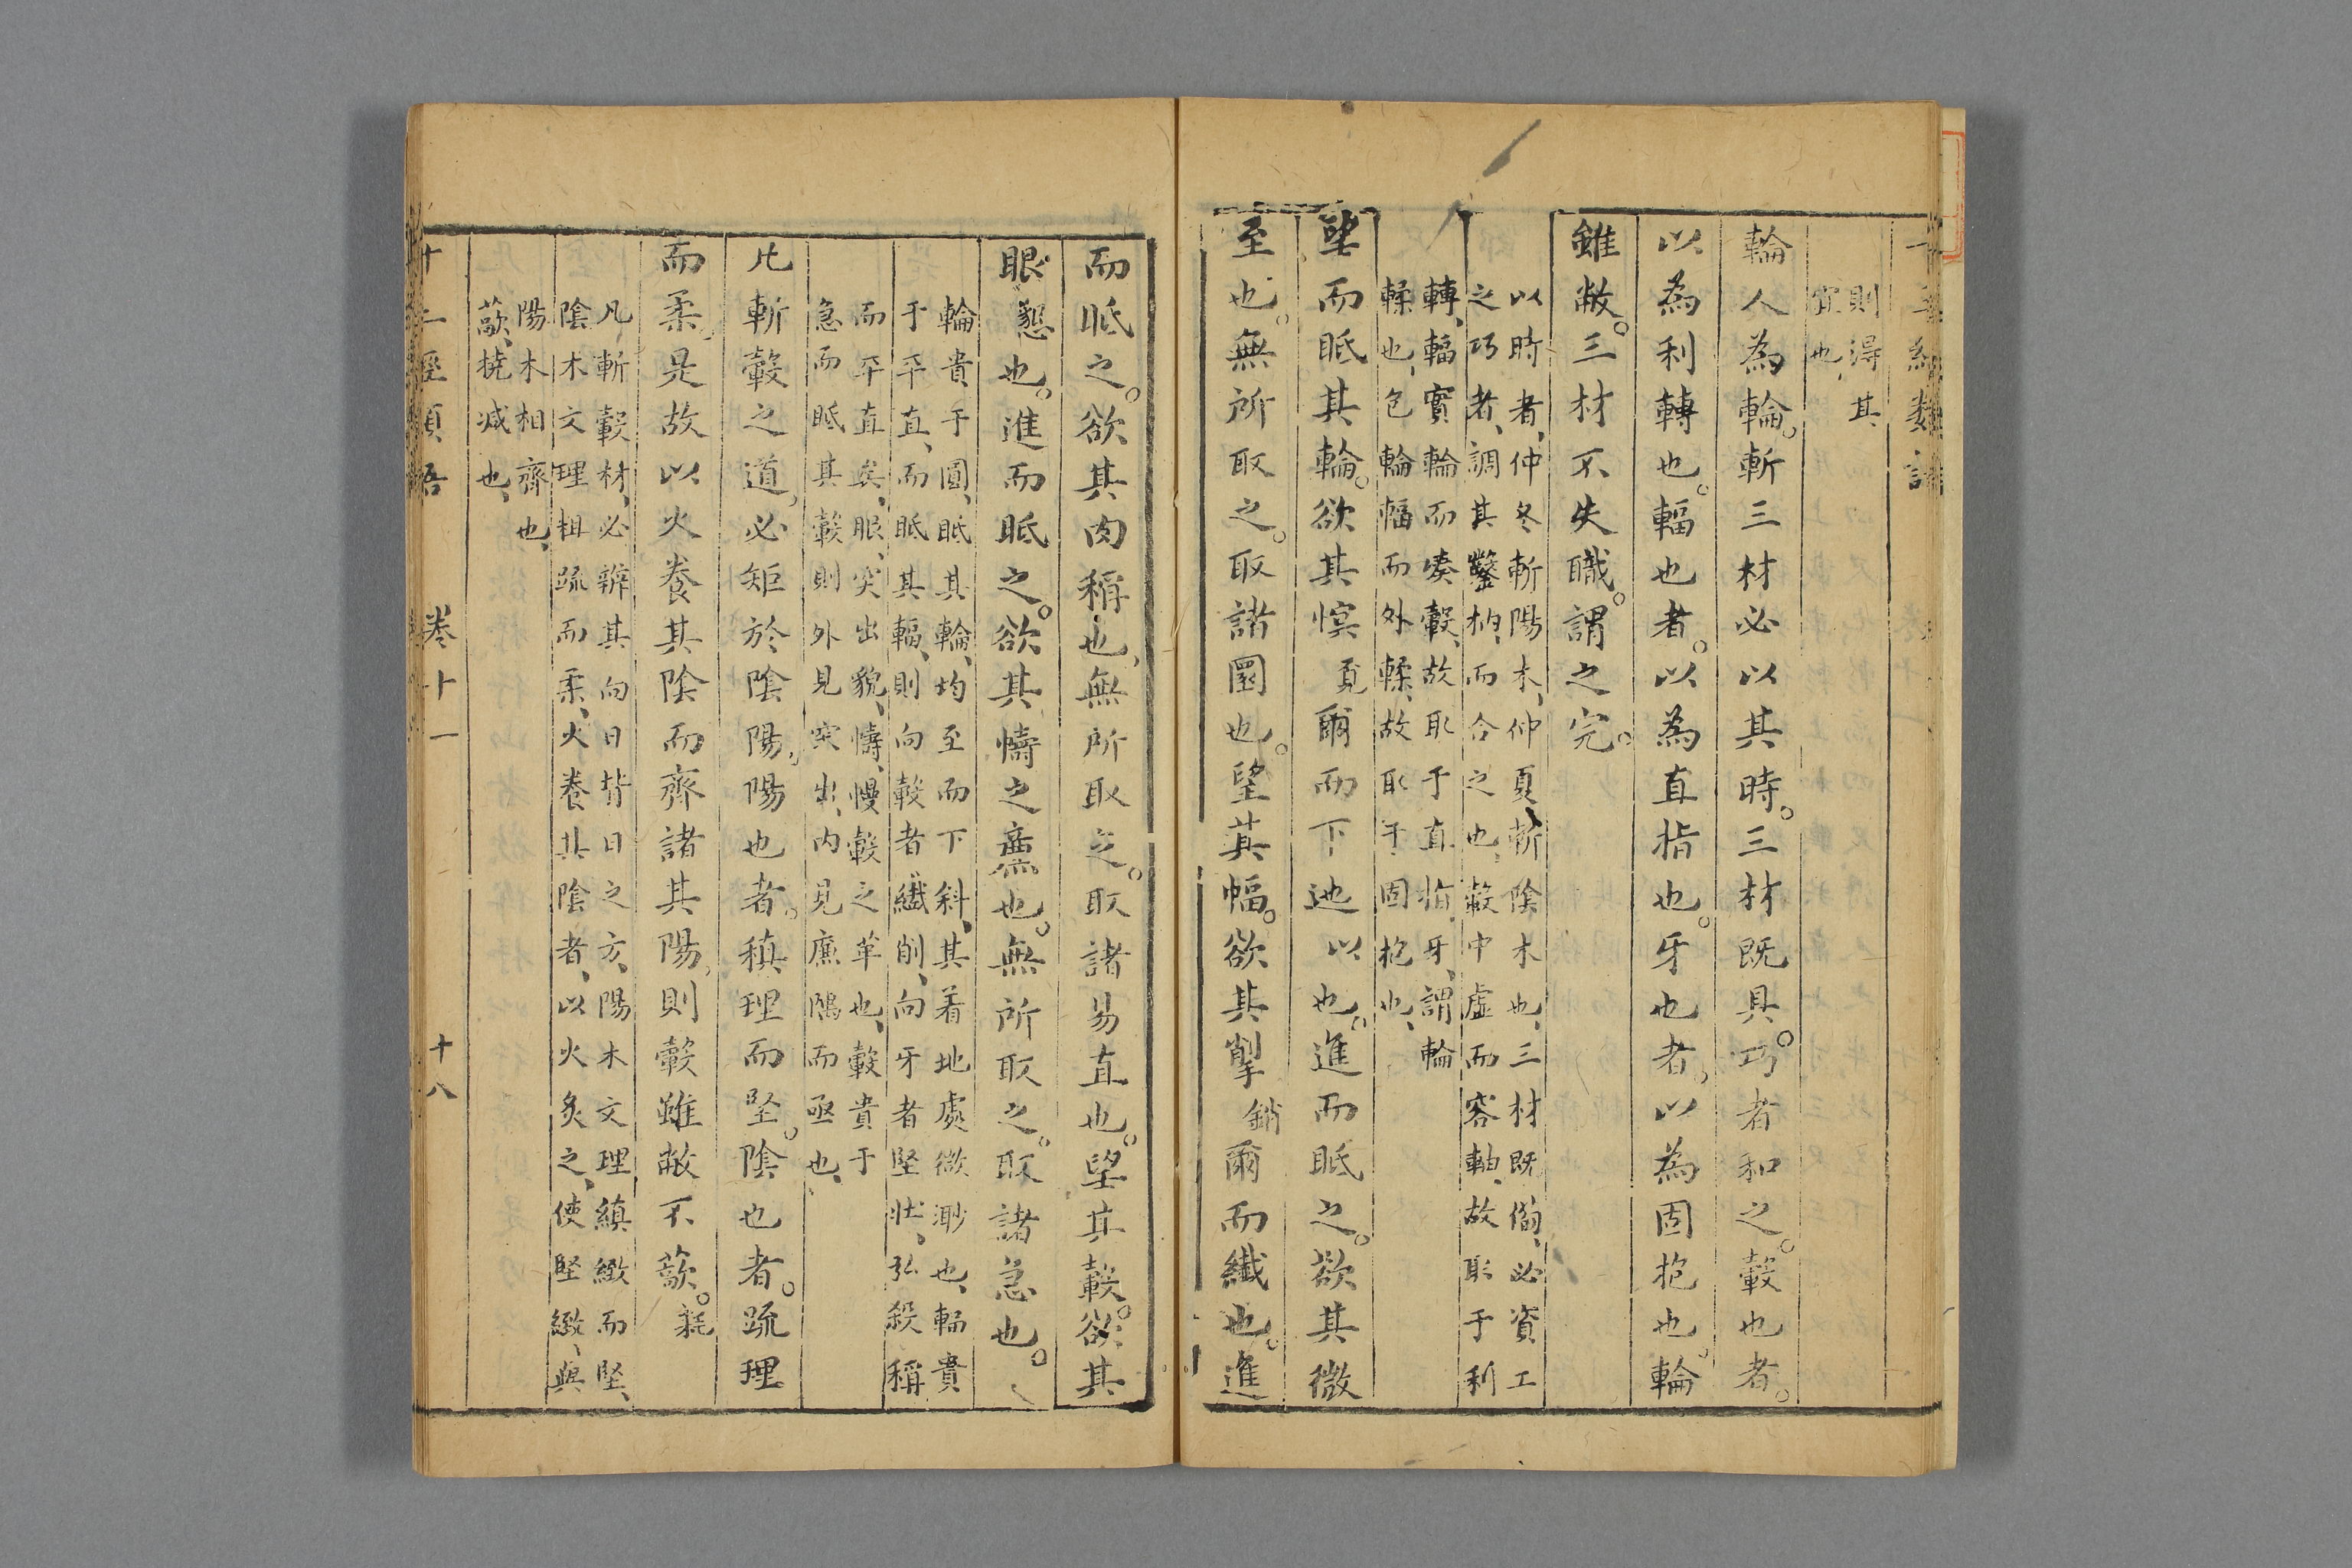 則得其
宜也、
輪人為輪。斬三材必以其時。三材既具。巧者和之。轂也者。
以為利轉也。輻也者。以為直指也。牙也者。以為固抱也。輪
雖敝。三材不失職。謂之完。
以時者、仲冬斬陽木、仲夏、斬陰木也、三材既備、必資工
之巧者、調其鑿枘、而合之也、轂中虛而容軸、故取于利
轉、輻實輪而湊轂、故取于直指、牙、謂輪
輮也、包輪幅而外輮、故取于固抱也、
望而眡其輪。欲其幎覓爾而下迆以也。進而眡之。欲其微
至也。無所取之。取諸圜也。望其幅。欲其揱銷爾而纖也。進
而眡之。欲其肉稱也。無所取之。取諸易直也。望其轂。欲其
眼懇也。進而眡之。欲其幬之廉也。無所取之。取諸急也。
輪貴于圓、眡其輪、均至而下斜、其着地處微渺也、輻貴
于平直、而眡其輻、則向轂者纖削、向牙者堅壯、弘殺稱
而平直矣、眼、突出貌、幬、慢轂之革也、轂貴于
急而眡其轂則外見突出、內見廉隅而亟也、
凡斬轂之道。必矩於陰陽。陽也者。稹理而堅。陰也者。疏理
而柔。是故以火養其陰而齊諸其陽。則轂雖敝不藃。耗
凡斬轂材、必辨其向日背日之方、陽木文理縝緻而堅、
陰木文理粗疏而柔、火養其陰者、以火炙之、使堅緻、與
陽木相齊也、
藃、橈減也、
卷十一
十八